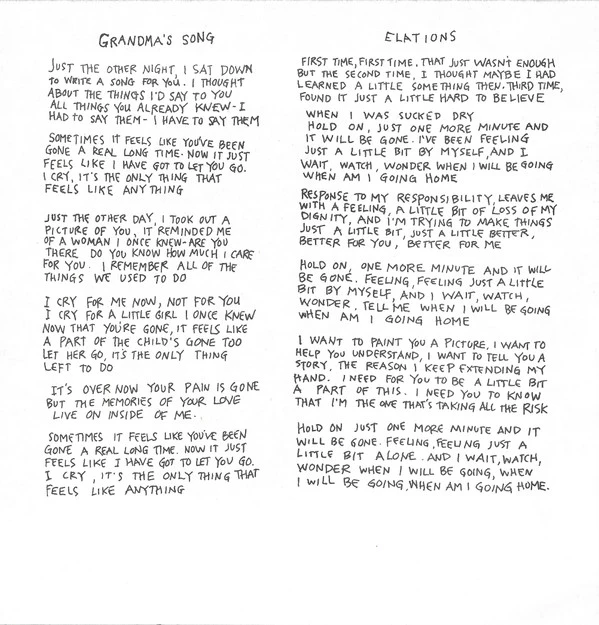 GRANDMA'S SONG
JUST THE OTHER NIGHT, I SAT DOWN
TO WRITE A SONG FOR YOU. I THOUGHT
ABOUT THE THINGS I'D SAY TO YOU
ALL THINGS YOU ALREADY KNEW-I
HAD TO SAY THEM-I HAVE TO SAY THEM
SOMETIMES IT FEELS LIKE YOU'VE BEEN
GONE A REAL LONG TIME. NOW IT JUST
FEELS LIKE I HAVE GOT TO LET YOU GO.
I CRY, IT'S THE ONLY THING THAT
FEELS LIKE ANYTHING
JUST THE OTHER DAY, I TOOK OUT A
PICTURE OF YOU, IT REMINDED ME
OF A WOMAN I ONCE KNEW-ARE YOU
THERE DO YOU KNOW HOW MUCH I CARE
FOR YOU. I REMEMBER ALL OF THE
THINGS WE USED TO DO
I CRY FOR ME NOW, NOT FOR YOU
I CRY FOR A LITTLE GIRL I ONCE KNEW
NOW THAT YOU'RE GONE, IT FEELS LIKE
A PART OF THE CHILD'S GONE TOO
LET HER GO, IT'S THE ONLY THING
LEFT TO DO
IT'S OVER NOW YOUR PAIN IS GONE
BUT THE MEMORIES OF YOUR LOVE
LIVE ON INSIDE OF ME.
SOMETIMES IT FEELS LIKE YOU'VE BEEN
GONE A REAL LONG TIME. NOW IT JUST
FEELS LIKE I HAVE GOT TO LET YOU GO.
I CRY, IT'S THE ONLY THING THAT
FEELS LIKE ANYTHING
ELATIONS
FIRST TIME, FIRST TIME. THAT JUST WASN'T ENOUGH
BUT THE SECOND TIME, I THOUGHT MAYBE I HAD
LEARNED A LITTLE SOMETHING THEN. THIRD TIME,
FOUND IT JUST A LITTLE HARD TO BELIEVE
WHEN I WAS SUCKED DRY
HOLD ON, JUST ONE MORE MINUTE AND
IT WILL BE GONE. I'VE BEEN FEELING
JUST A LITTLE BIT BY MYSELF, AND I
WAIT, WATCH, WONDER WHEN I WILL BE GOING
WHEN AM I GOING HOME
RESPONSE TO MY RESPONSIBILITY, LEAVES ME
WITH A FEELING, A LITTLE BIT OF LOSS OF MY
DIGNITY, AND I'M TRYING TO MAKE THINGS
JUST A LITTLE BIT, JUST A LITTLE BETTER,
BETTER FOR YOU, BETTER FOR ME
HOLD ON, ONE MORE MINUTE AND IT WILL
BE GONE. FEELING, FEELING JUST A LITTLE
BIT BY MYSELF, AND I WAIT, WATCH,
WONDER. TELL ME WHEN I WILL BE GOING
WHEN AM I GOING HOME
I WANT TO PAINT YOU A PICTURE, I WANT TO
HELP YOU UNDERSTAND, I WANT TO TELL YOU A
STORY, THE REASON I KEEP EXTENDING MY
HAND. I NEED FOR YOU TO BE A LITTLE BIT
A PART OF THIS. I NEED YOU TO KNOW
THAT I'M THE ONE THAT'S TAKING ALL THE RISK
HOLD ON JUST ONE MORE MINUTE AND IT
WILL BE GONE. FEELING, FEELING JUST A
LITTLE BIT ALONE. AND I WAIT, WATCH,
WONDER WHEN I WILL BE GOING, WHEN
I WILL BE GOING, WHEN AM I GOING HOME.